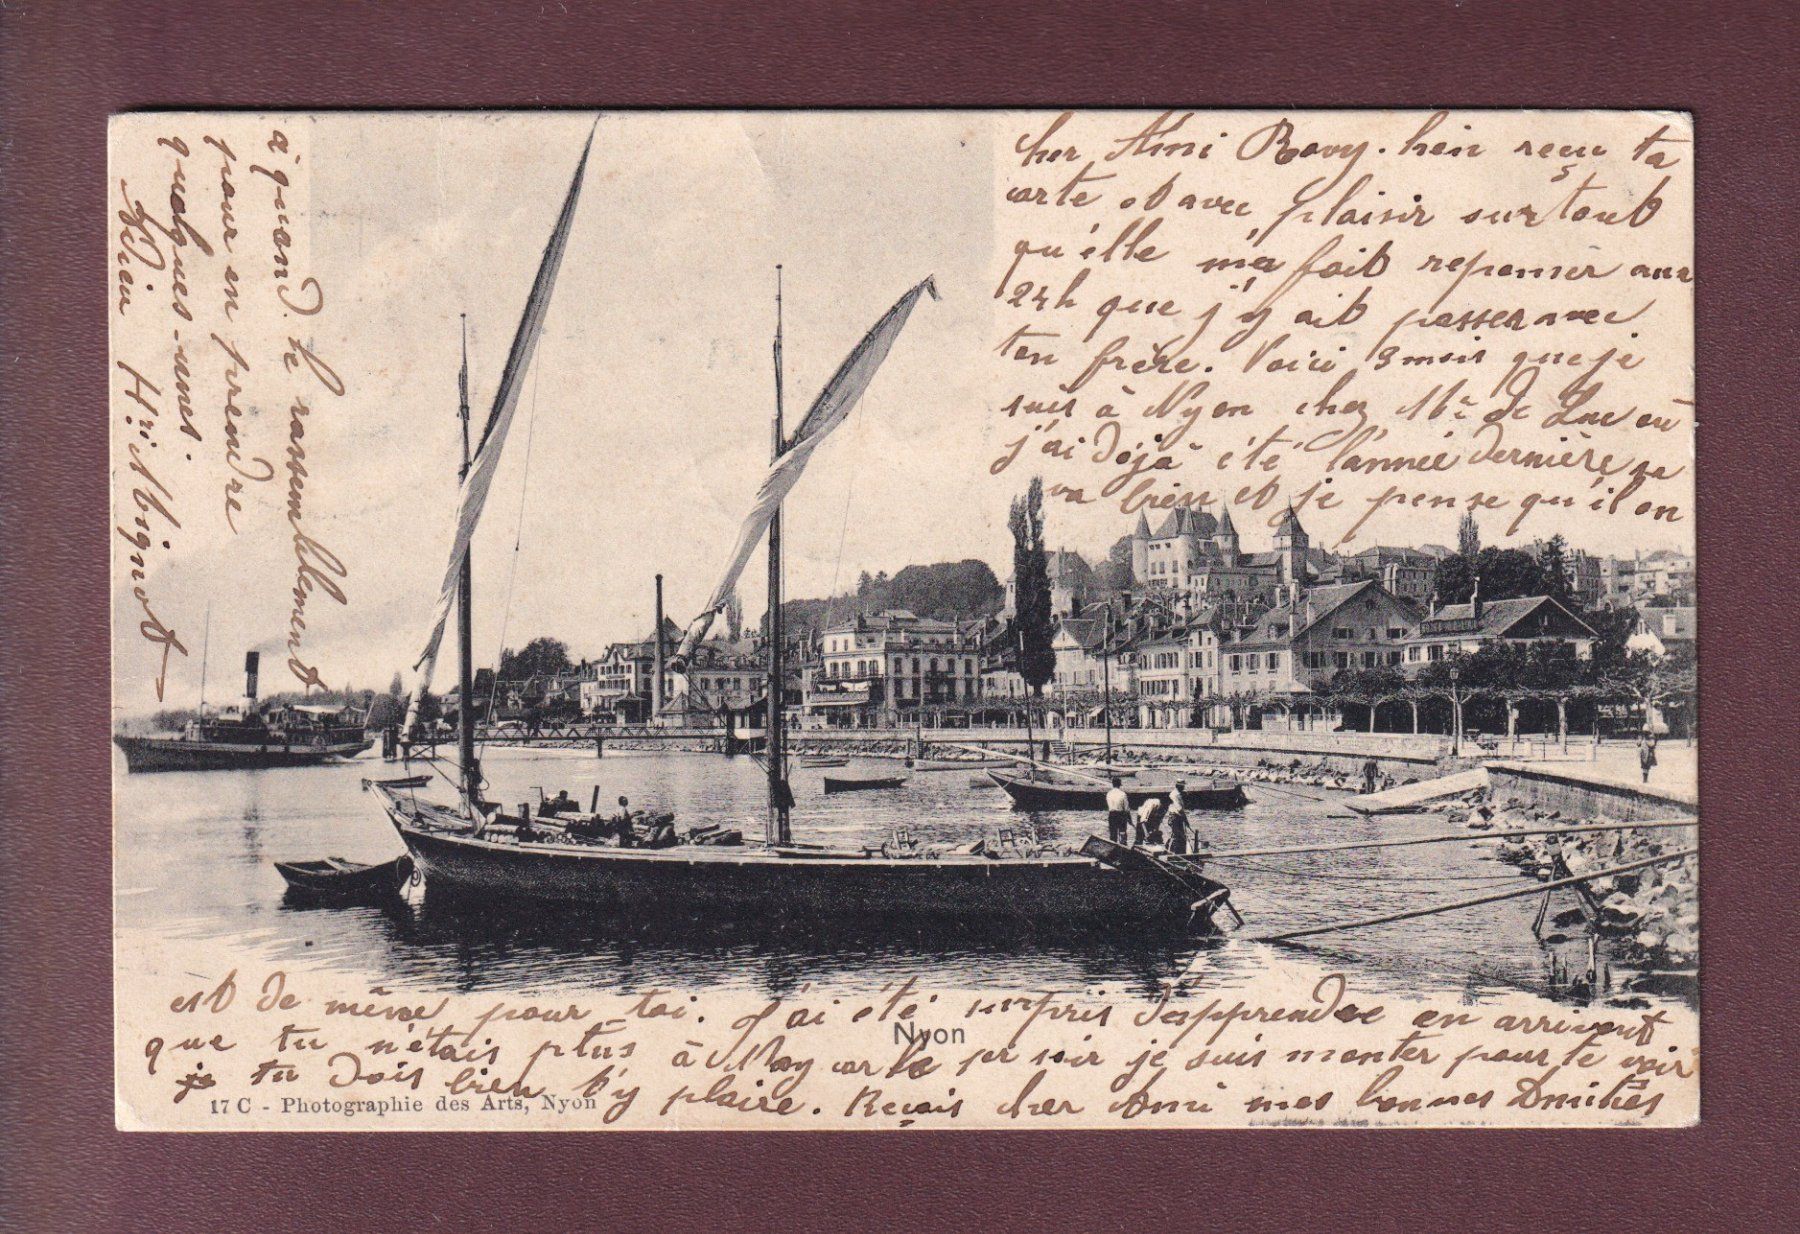 cher Ami Ravy. bien reçu ta
carte et avec plaisir surtout
qu'elle m'a fait repenser aux
24h que j'y ait passer avec
ton frère. Voici 3 mois que je
suis à Nyon chez Mr de Luc où
j'ai dejà été l'année dernière sa
va bien et je pense qu'il en
est de même pour toi. J'ai été surpris d'apprendre en arrivant
que tu n'étais plus à car le 1er soir je suis monter pour te voir
je tu dois bien t'y plaire. Reçois cher Ami mes bonnes Amitiés
à quand le rassemblement
pour en prendre
quelques-unes.
Adieu Hri Abignot
Nyon
17 C - Photographie des Arts, Nyon